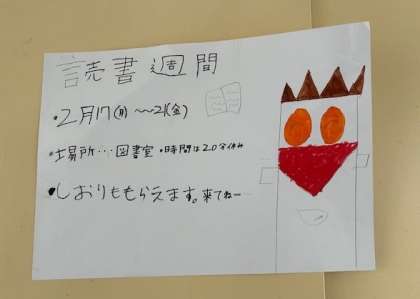 読書週間
・2月17(月)〜21(金)
・場所…図書室 ・時間は20分休み
・しおりももらえます。来てねー